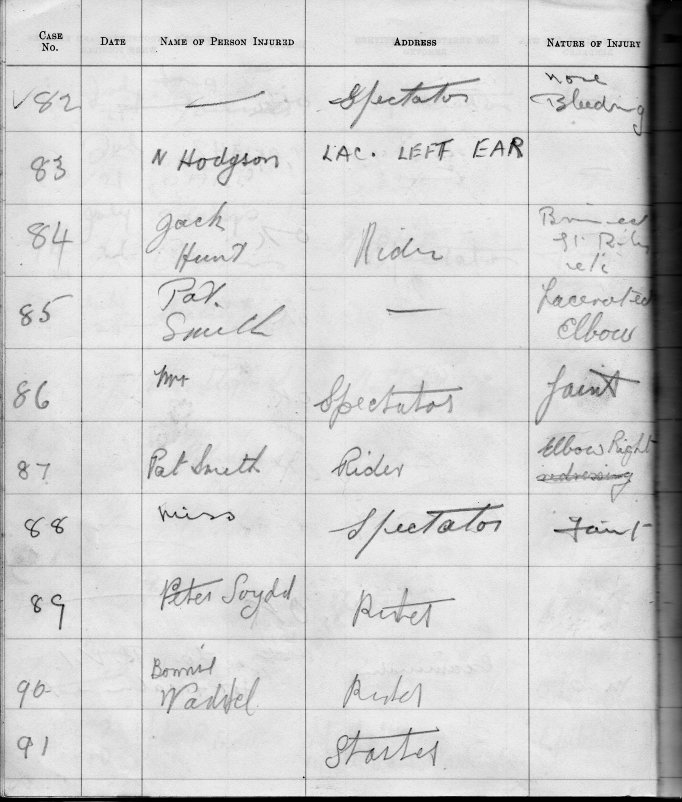 CASE No. DATE NAME OF PERSON INJURED ADDRESS NATURE OF INJURY
√82 — Spectator nose
Bleeding
83 N Hodgson LAC. LEFT EAR
84 Jack Rider Bruised
Hunt Ribs
85 Pat. — Lacerated
Smith Elbow
86 Mr Spectator faint
87 Pat Smith Rider Elbow Right
redressing
88 Miss Spectator Faint
89 Peter Rider
90 Bonnie Rider
Waddel
91 Starter